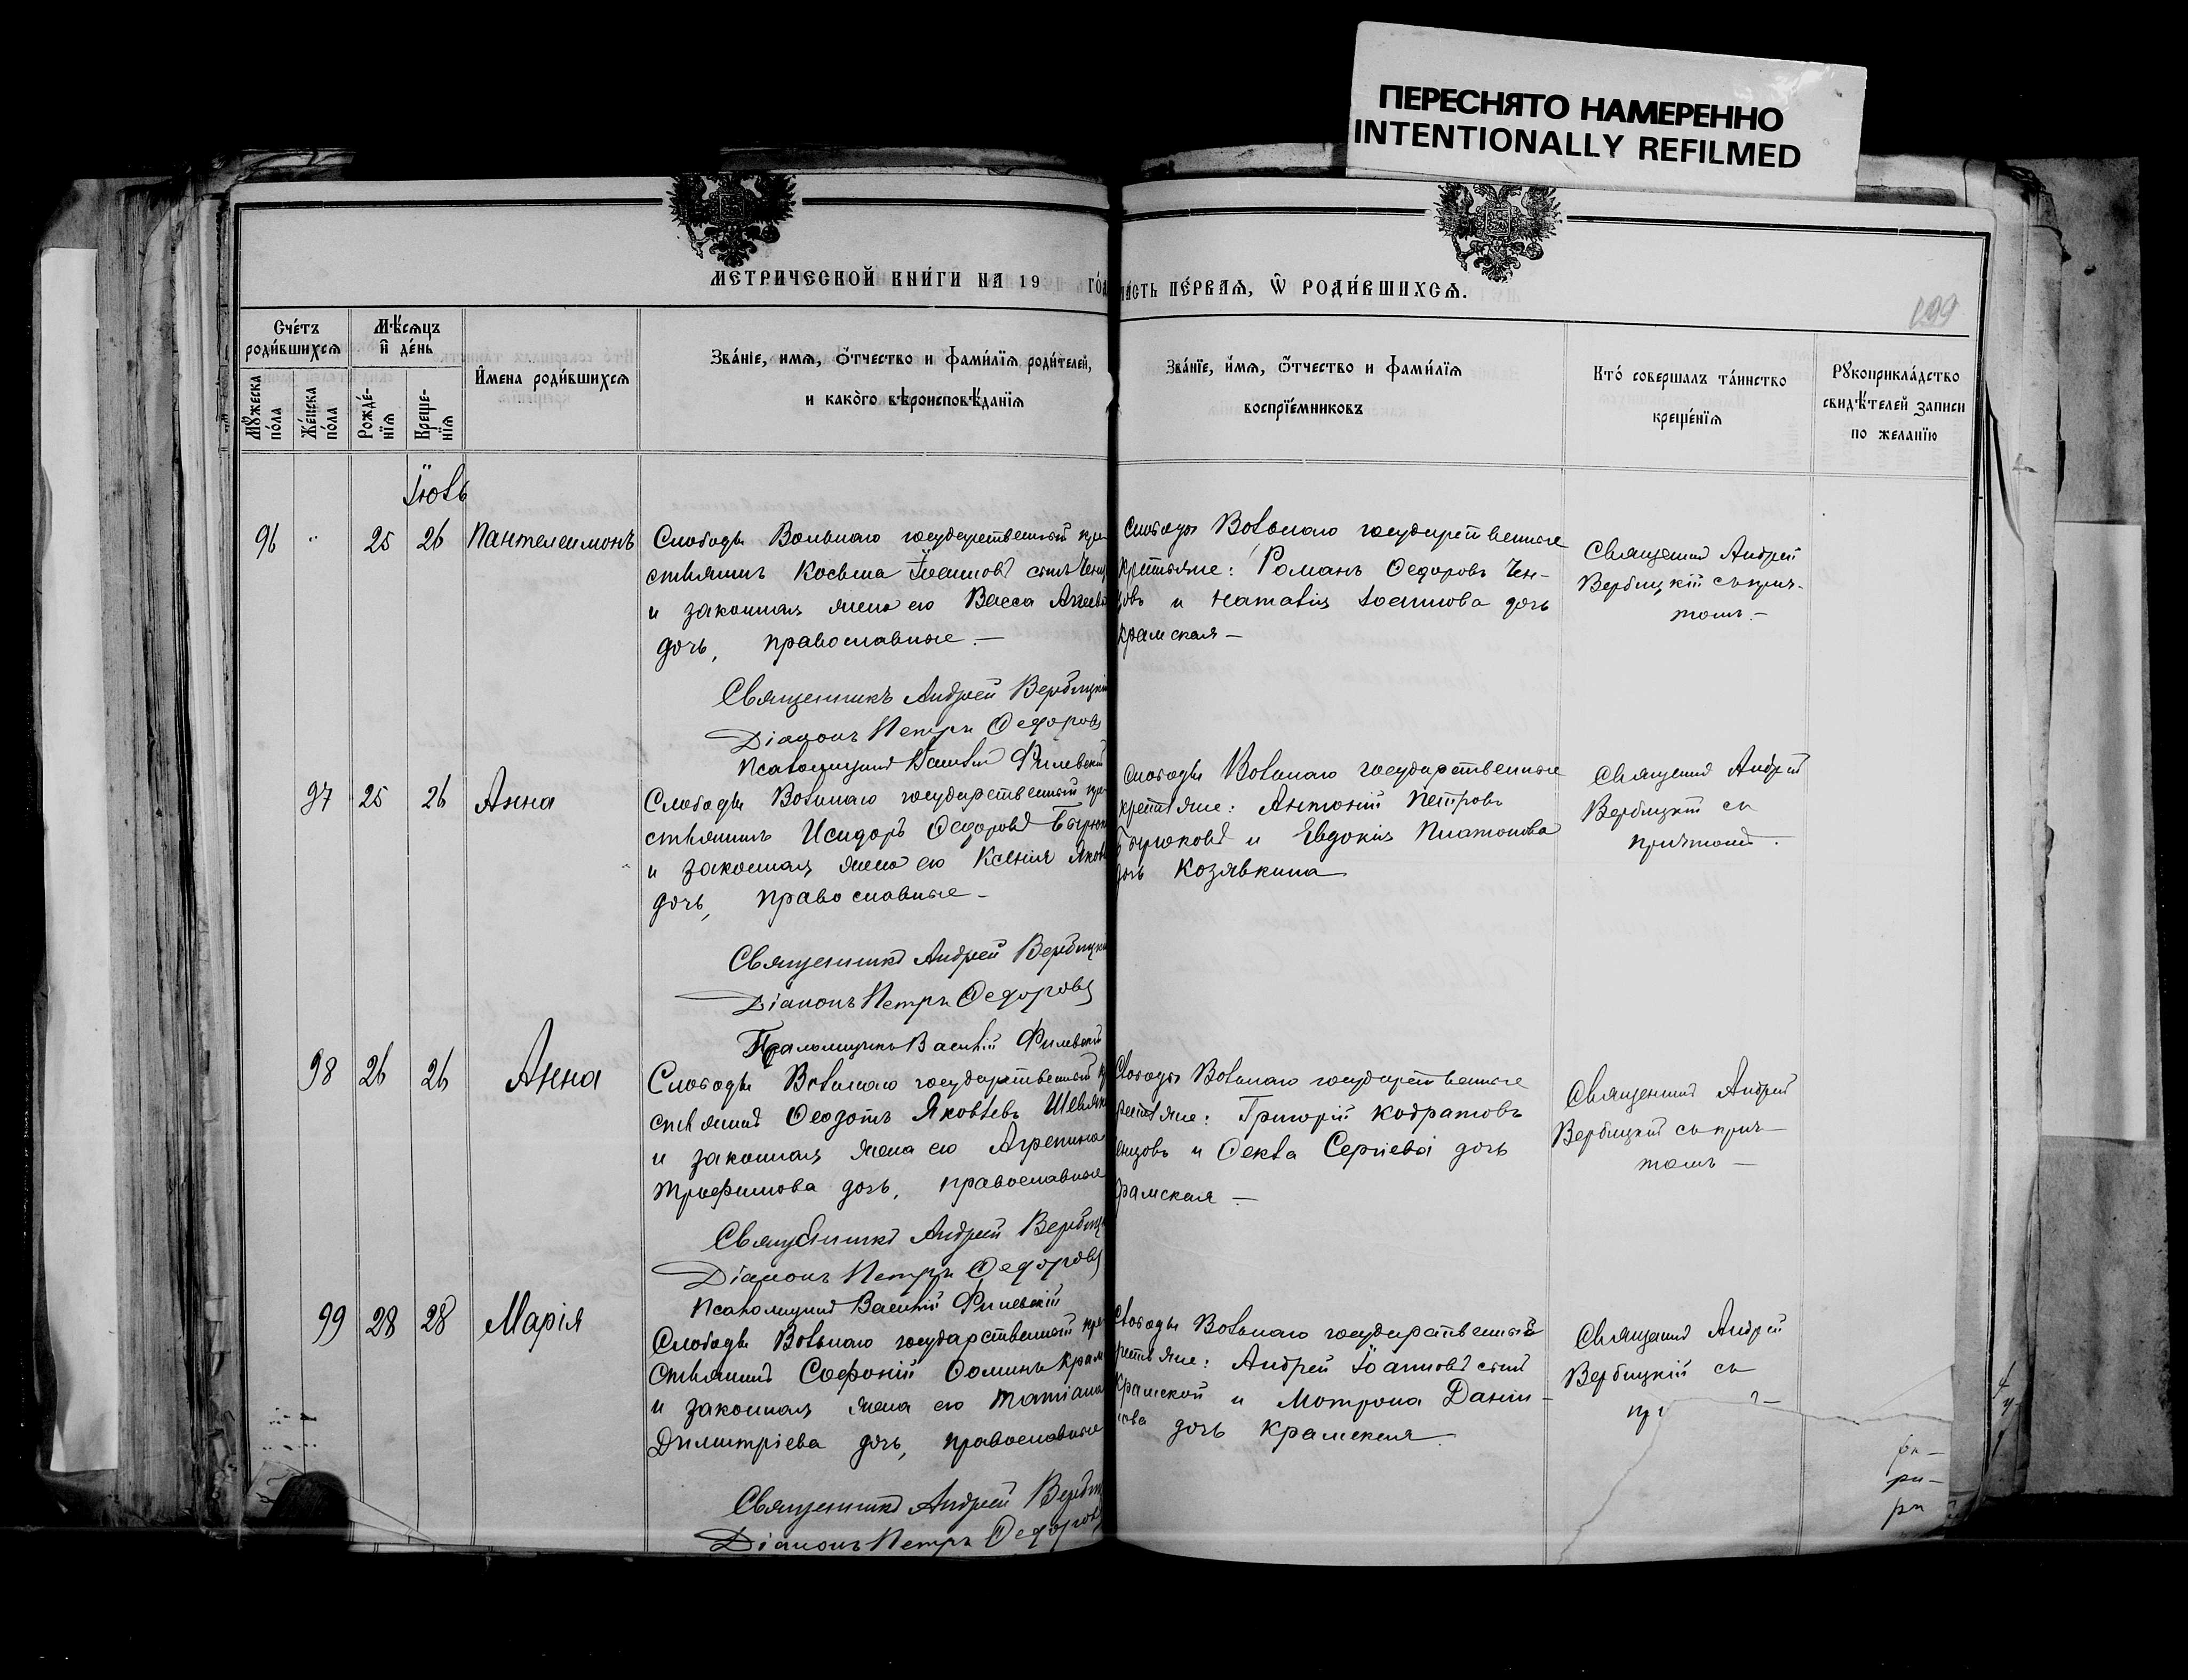 ПЕРЕСНЯТО НАМЕРЕННО
INTENTIONALLY REFILMED
МЕТРИЧЕСКОЙ КНИ́ГИ НА 19 ГО́Д
ЧА́СТЬ ПЕ́РВАЯ, Ѿ РОДИ́ВШИХСЯ.
199
Сче́тъ роди́вшихся
Мѣ́сяцъ и де́нь
Имена роди́вшихся
Зва́нїе, имя, ѻ́тчество и фами́лїя роди́телей,
и како́го вѣроисповѣ́данїя
Му́жеска по́ла
Же́нска по́ла
Рожде́-
нїя
Креще-
нїя
Зва́нїе, и́мя, ѻ́тчество и фами́лїя
воспрїе́мниковъ
Кто́ совершалъ та́инство
креще́нїя
Рукоприкла́дство
свидѣ́телей записи
по желанїю
Іюль
96 " 25 26 Пантелеимонъ
Слободы Вольнаго государственный кре
стьянинъ Косьма Іоанновъ сынъ
и законная жена его Васса
дочь, православные. —
Священникъ Андрей Вербицкій
Діаконъ Петръ Ѳедоровъ
Псаломщикъ Василій Филевскій
Слободы Вольнаго государственные
крестьяне: Романъ Ѳедоровъ Чен-
цовъ и Наталія Іоаннова дочь
Крамская —
Священникъ Андрей
Вербицкій съ прич-
томъ. —
97 25 26 Анна
Слободы Вольнаго государственный кре
стьянинъ Исидоръ Ѳедоровъ Бирюк
и законная жена его Ксенія Яков
дочь, православные —
Священникъ Андрей Вербицкі
Діаконъ Петръ Ѳедоровъ
Псаломщикъ Василій Филевскій
Слободы Вольнаго государственные
крестьяне: Антоній Петровъ
Бирюковъ и Евдокія Платонова
дочь Козявкина
Священникъ Андрей
Вербицкій съ
причтомъ.
98 26 26 Анна
Слободы Вольнаго государственный кр
стьянинъ Ѳеодотъ Яковлевъ
и законная жена его Агрепина
Трофимова дочь, православные
Священникъ Андрей Вербиц
Діаконъ Петръ Ѳедоровъ
Псаломщикъ Василій Филевскій
Слободы Вольнаго государственные
рестьяне: Григорій Кодратовъ
енцовъ и Ѳекла Сергіева дочь
рамская —
Священникъ Андрей
Вербицкій съ прич-
томъ —
99 28 28 Марія
Слободы Вольнаго государственный кре
стьянинъ Софоній Ѳоминъ Крам
и законная жена его Татіана
Димитріева дочь, православные
Священникъ Андрей Вербиц
Діаконъ Петръ Ѳедоровъ
Слободы Вольнаго государственный
рестьяне: Андрей Іоанновъ сынъ
Крамской и Мотрона Данiи-
лова дочь Крамская.
Священникъ Андрей
Вербицкій съ
пр